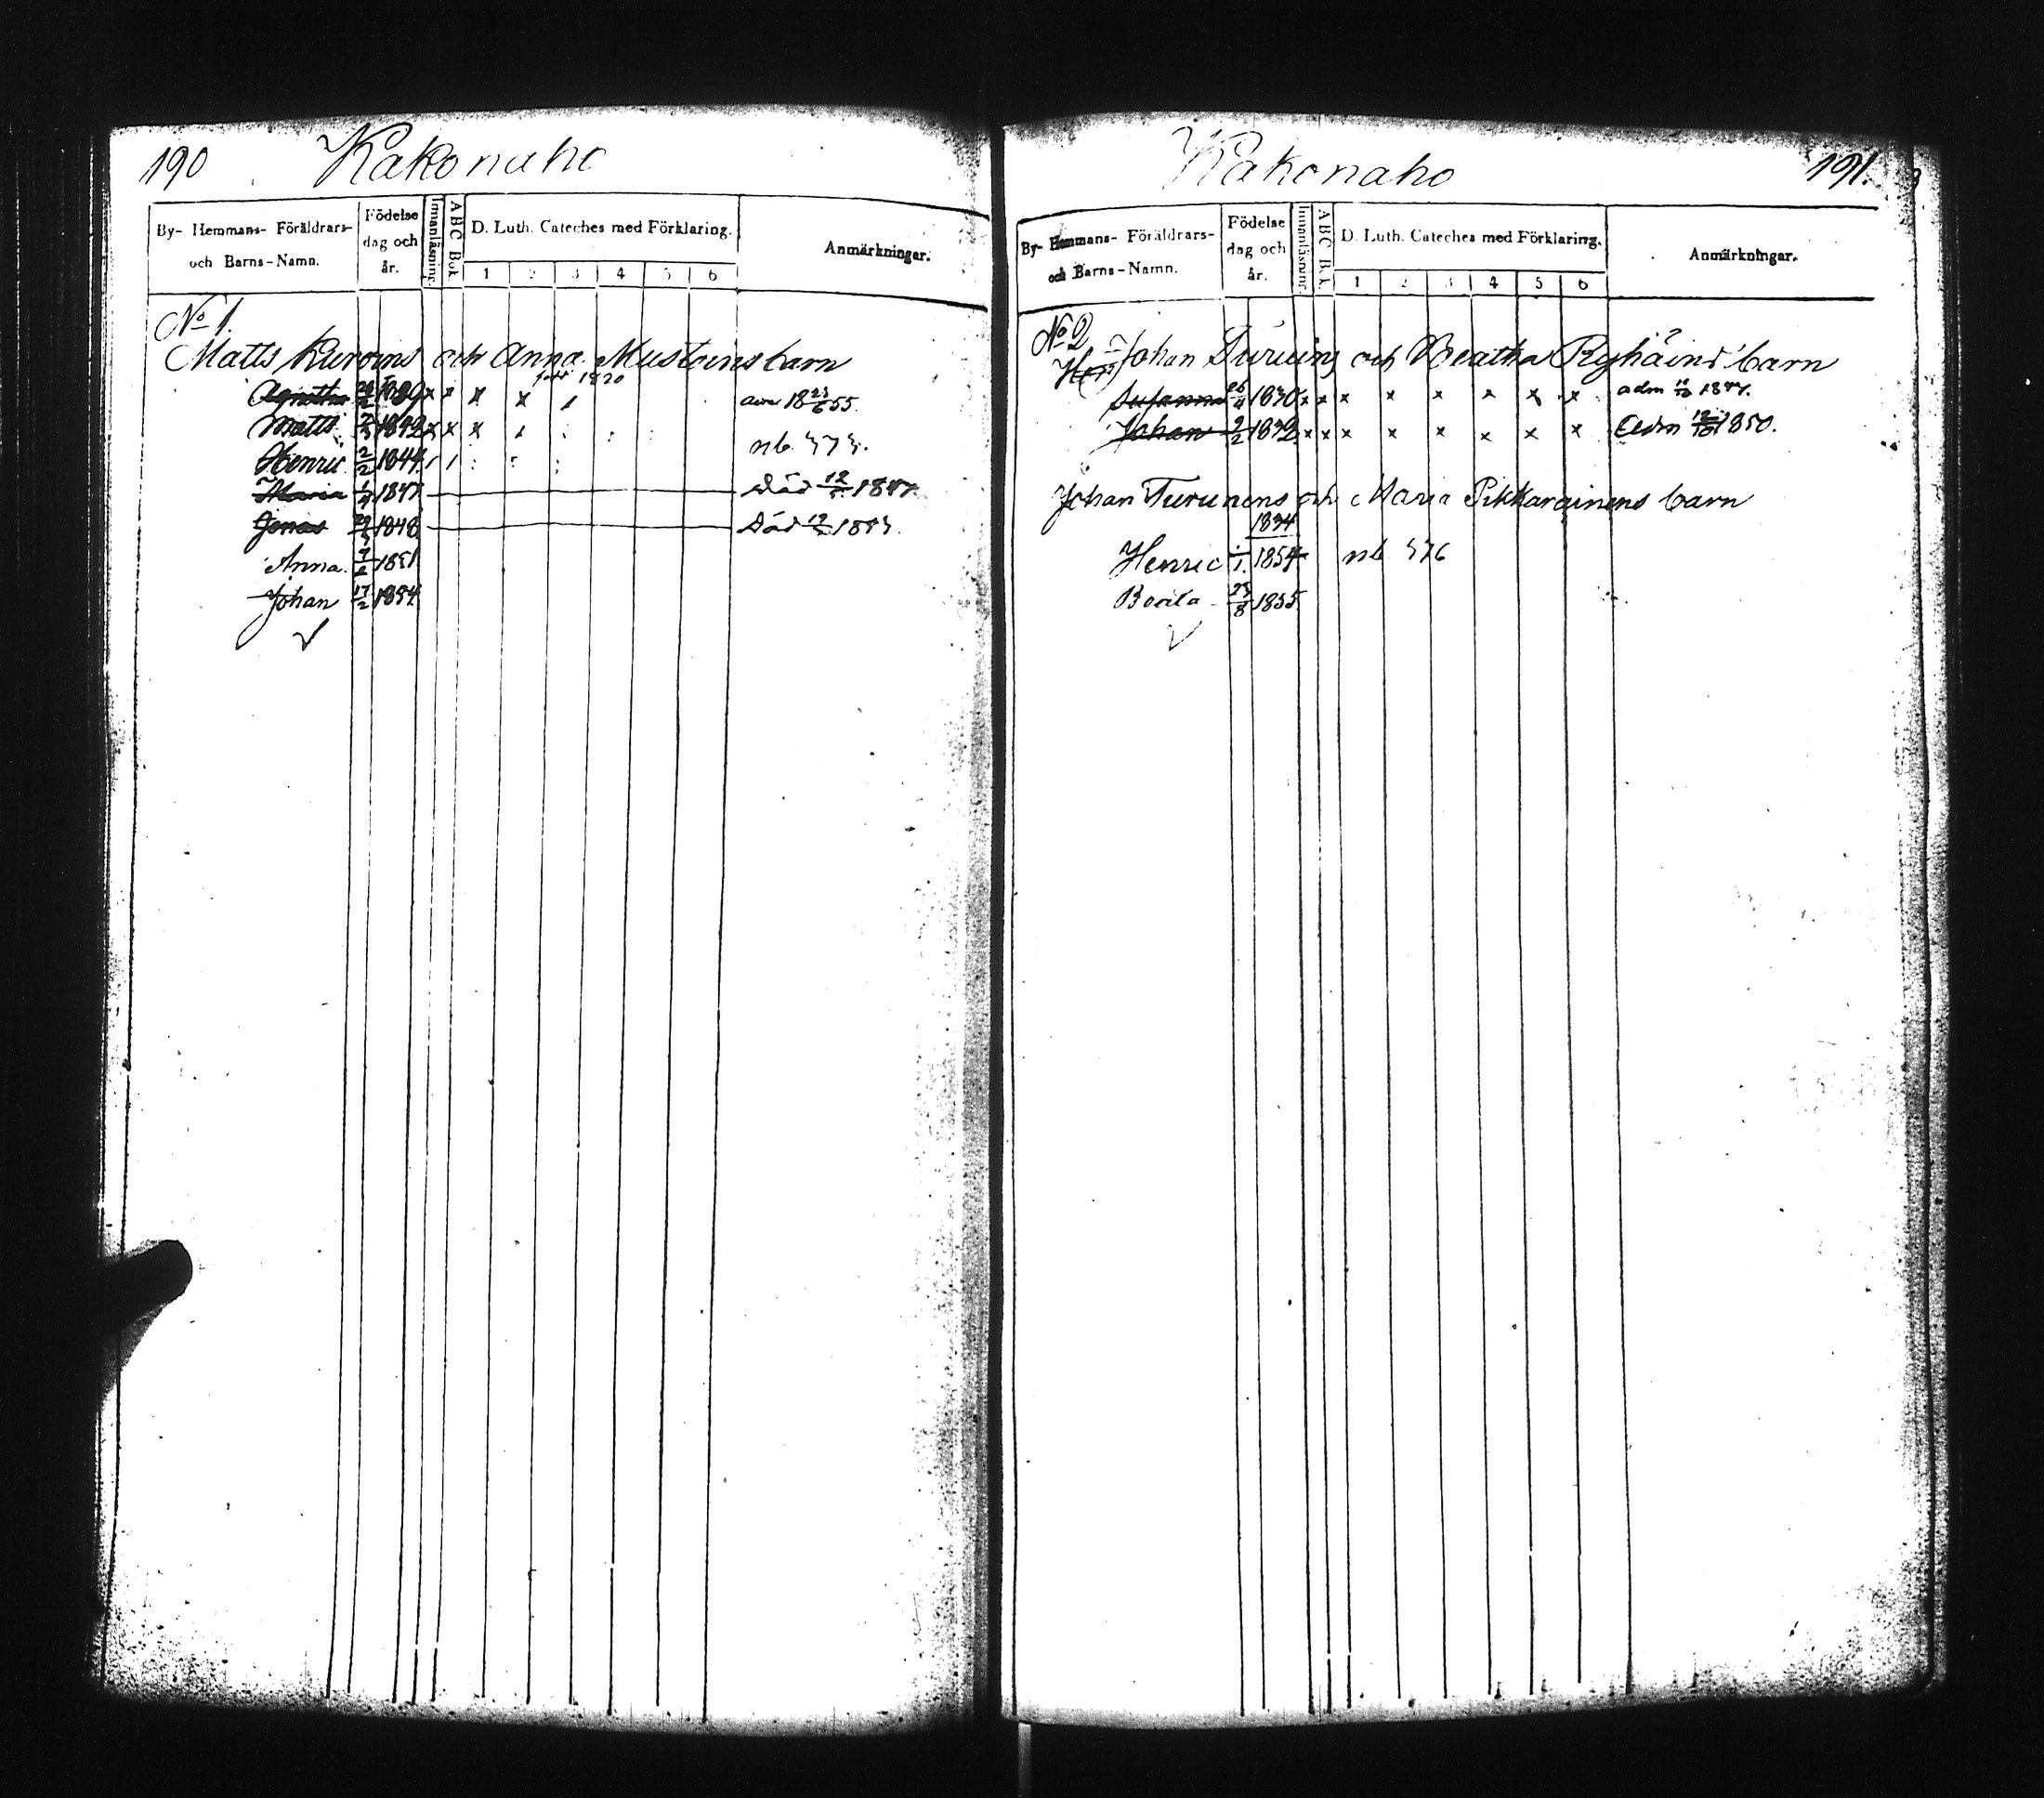 190 Kakonaho
By- Hemmans- Föräldrars- och Barns-Namn. Födelse dag och år. Innanläsning. ABC Bok. D. Luth. Cateches med Förklaring. 1 2 3 4 5 6 Anmärkningar.
No 1.
Matts och Anna Mustoins barn
född 1820
Agnetha 1839 x x x x 18 23/6 55.
Matts 1842 x x x nb 575.
Henric 2/2 1844
Maria 1847 Död 1847.
Jonas 1848 Död
Anna 1851
Johan 17/2 1854
Kakonaho 191.
By- Hemmans- Föräldrars- och Barns-Namn. Födelse dag och år. Innanläsning. ABC B.k. D. Luth. Cateches med Förklaring. 1 2 3 4 5 6 Anmärkningar.
No 2
Johan och Beatha Ryhäins barn
Susanna 1830 x x x x x x x x adm 1847.
Johan 9/2 1832 x x x x x x x x Adm 1850.
Johan Turunens och Maria Pikkarainens barn
1854
Henric 1854 nb 576
Beata 25/8 1855